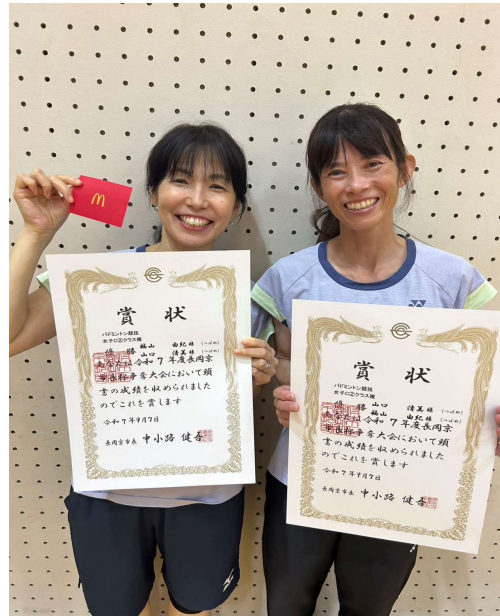 M
賞状
バドミントン競技
女子C②クラス様
優勝 福山 由紀様 (つばめ)
山口 清美様 (つばめ)
あなたは令和7年度長岡京
市長杯争奪大会において頭
書の成績を収められました
のでこれを賞します
令和7年9月7日
長岡京市長 中小路 健吾
賞状
バドミントン競技
女子C②クラス様
優勝 山口 清美様 (つばめ)
福山 由紀様 (つばめ)
あなたは令和7年度長岡京
市長杯争奪大会において頭
書の成績を収められました
のでこれを賞します
令和7年9月7日
長岡京市長 中小路 健吾